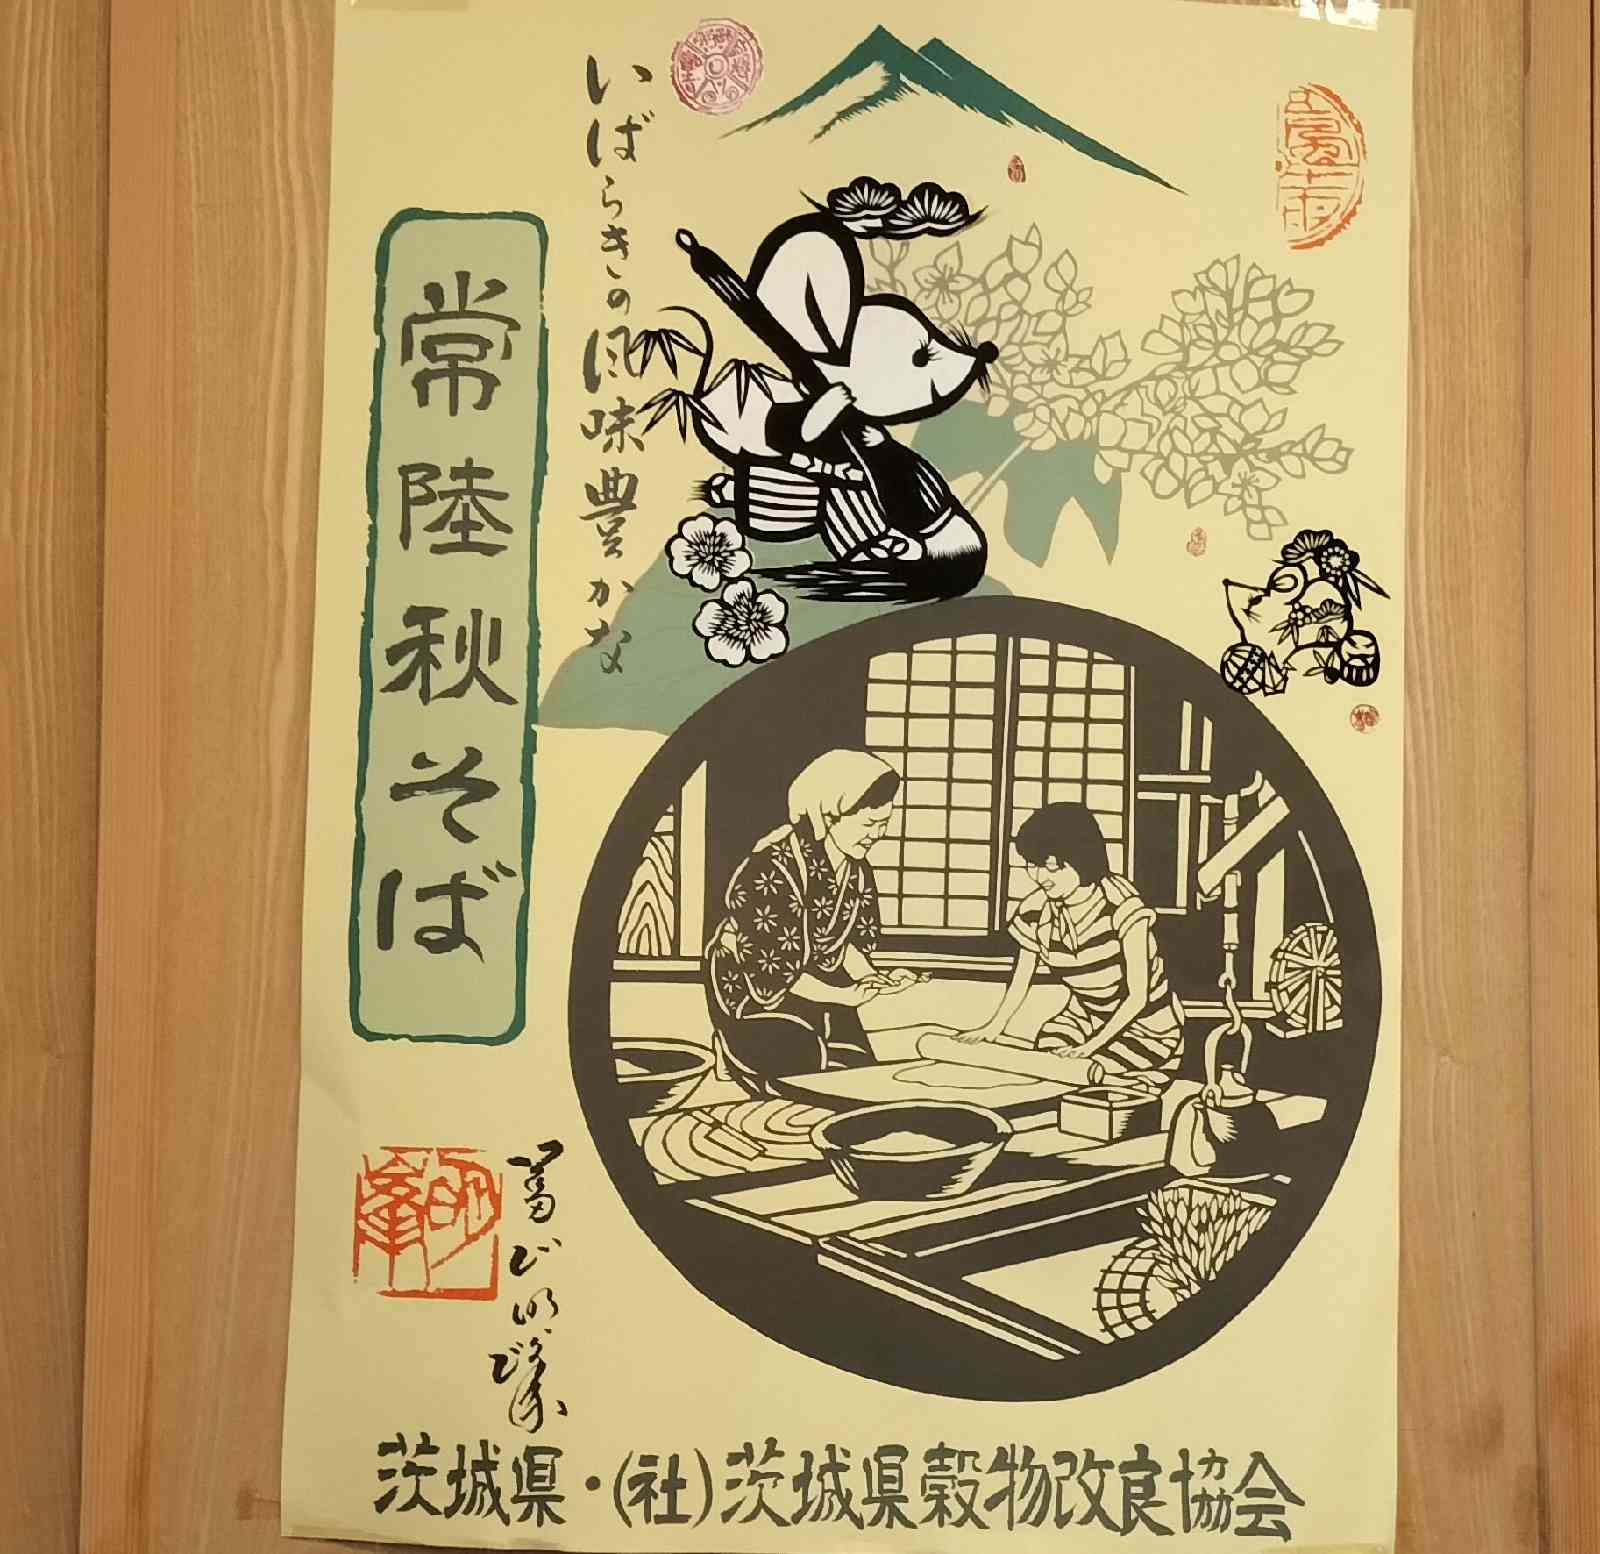 いばらきの風味豊かな
常陸秋そば
茨城県・(社)茨城県穀物改良協会